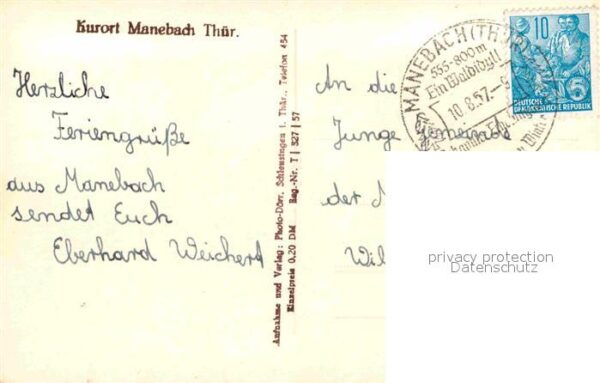 Kurort Manebach Thür.
Herzliche
Feriengrüße
aus Manebach
sendet Euch
Eberhard Weichert
Aufnahme und Verlag: Photo-Dörr, Schleusingen i. Thür., Telefon 454
Einzelpreis 0.20 DM Reg.-Nr. T | 327 | 57
An die
Junge Gemeinde
der
Wil
MANEBACH (THÜR)
555-800m
Ein Waldidyll
10.8.57.-
10
DEUTSCHE
DEMOKRATISCHE REPUBLIK
5
privacy protection
Datenschutz